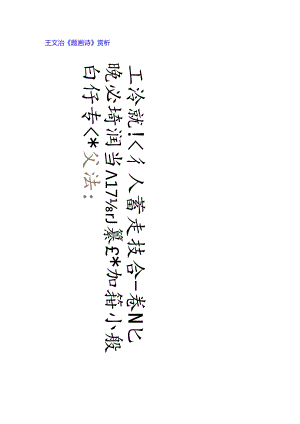 王文治《题画诗》赏析
工泠就!<彳人蓄走技合-卷N匕
晚必埼润当Λ17⅛rJ纂£*加箝小般
白仔专<*父法：